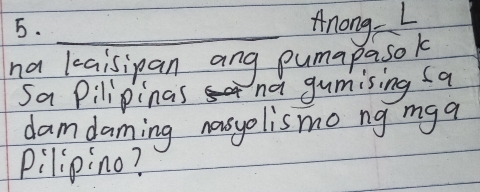 5. ____________ Anong L
na kaisipan ang pumapasok
sa Pilipinas na gumising sa
damdaming nasyolismo ng mga
Pilipino?